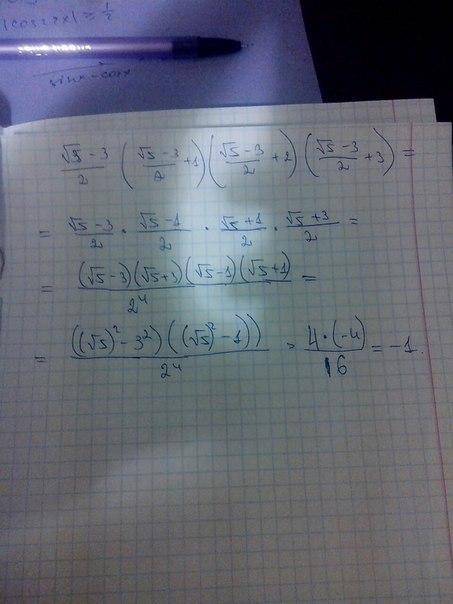 |cos2πx| ≥ 1/2
sinx - cosx
(√5 - 3)/2 ((√5 - 3)/2 + 1)((√5 - 3)/2 + 2)((√5 - 3)/2 + 3) =
= (√5 - 3)/2 · (√5 - 1)/2 · (√5 + 1)/2 · (√5 + 3)/2 =
= (√5 - 3)(√5 + 3)(√5 - 1)(√5 + 1)/2⁴ =
= ((√5)² - 3²)((√5)² - 1))/2⁴ = 4·(-4)/16 = -1.